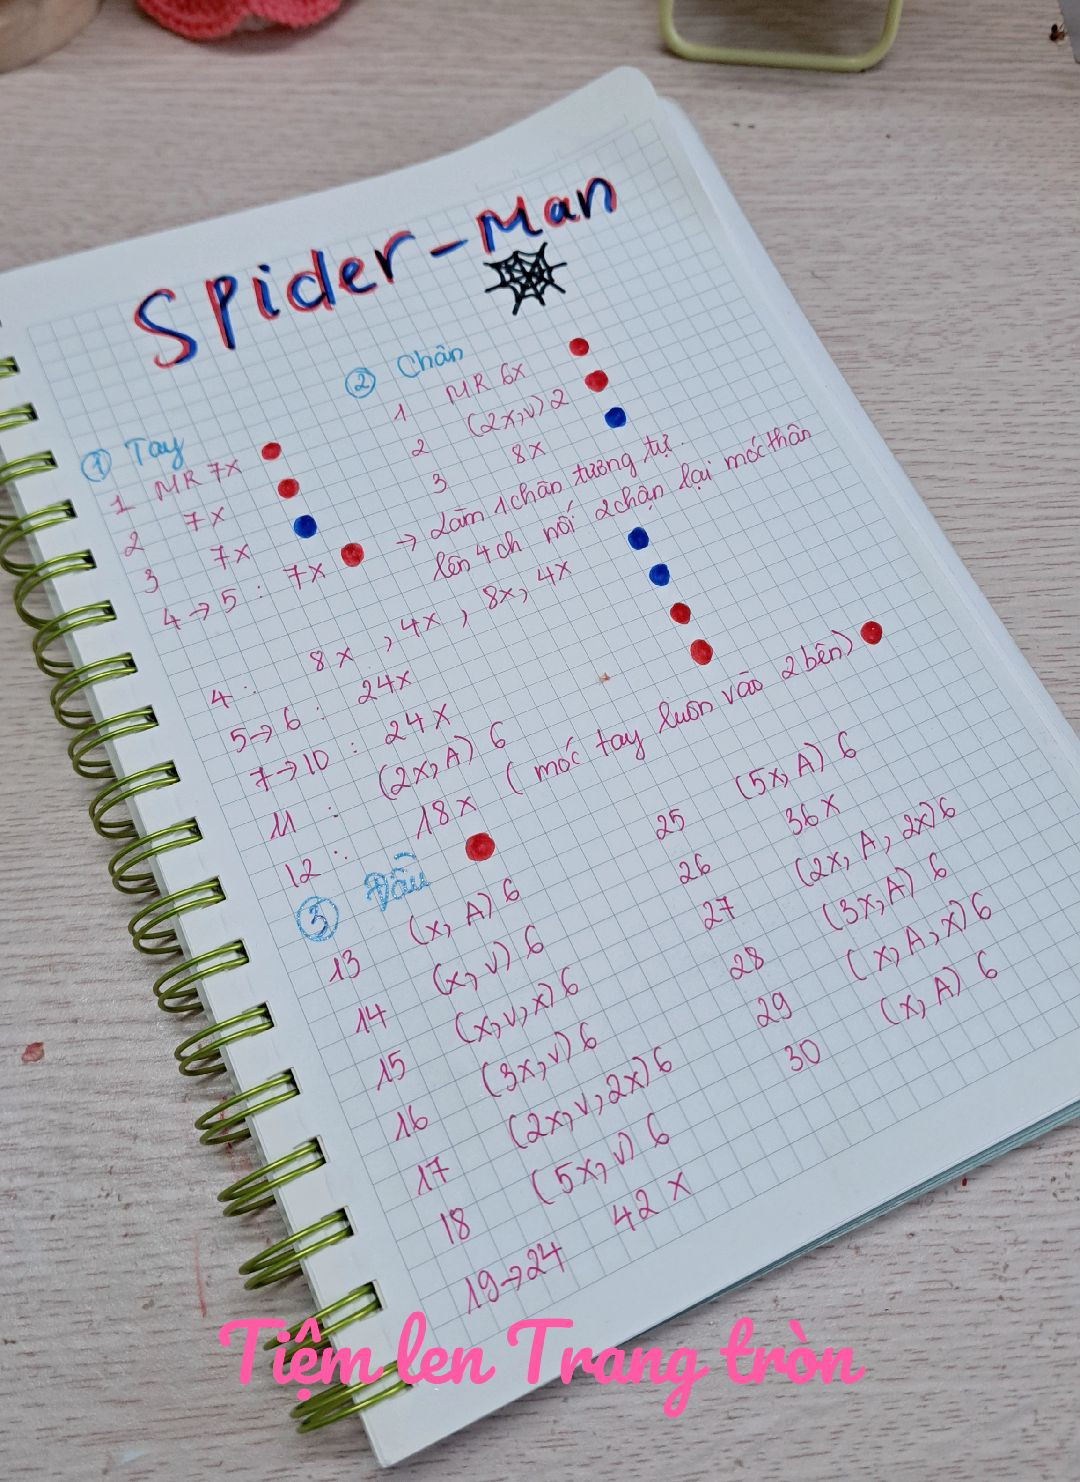 Spider-Man
① Tay
1 MR 7x
2 7x
3 7x
4→5 : 7x
② Chân
1 MR 6x
2 (2x,v) 2
3 8x
→ Làm 1 chân tương tự.
lên 4 ch nối 2 chân lại móc thân
4: 8x, 4x, 8x, 4x
5→6 : 24x
7→10 : 24x
11 : (2x, A) 6
12 : 18x ( móc tay luôn vào 2 bên)
③ Đầu
13 (x, A) 6
14 (x, v) 6
15 (x, v, x) 6
16 (3x, v) 6
17 (2x, v, 2x) 6
18 (5x, v) 6
19→24 42 x
25 (5x, A) 6
26 36x
27 (2x, A, 2x) 6
28 (3x, A) 6
29 (x, A, x) 6
30 (x, A) 6
Tiệm len Trang tròn